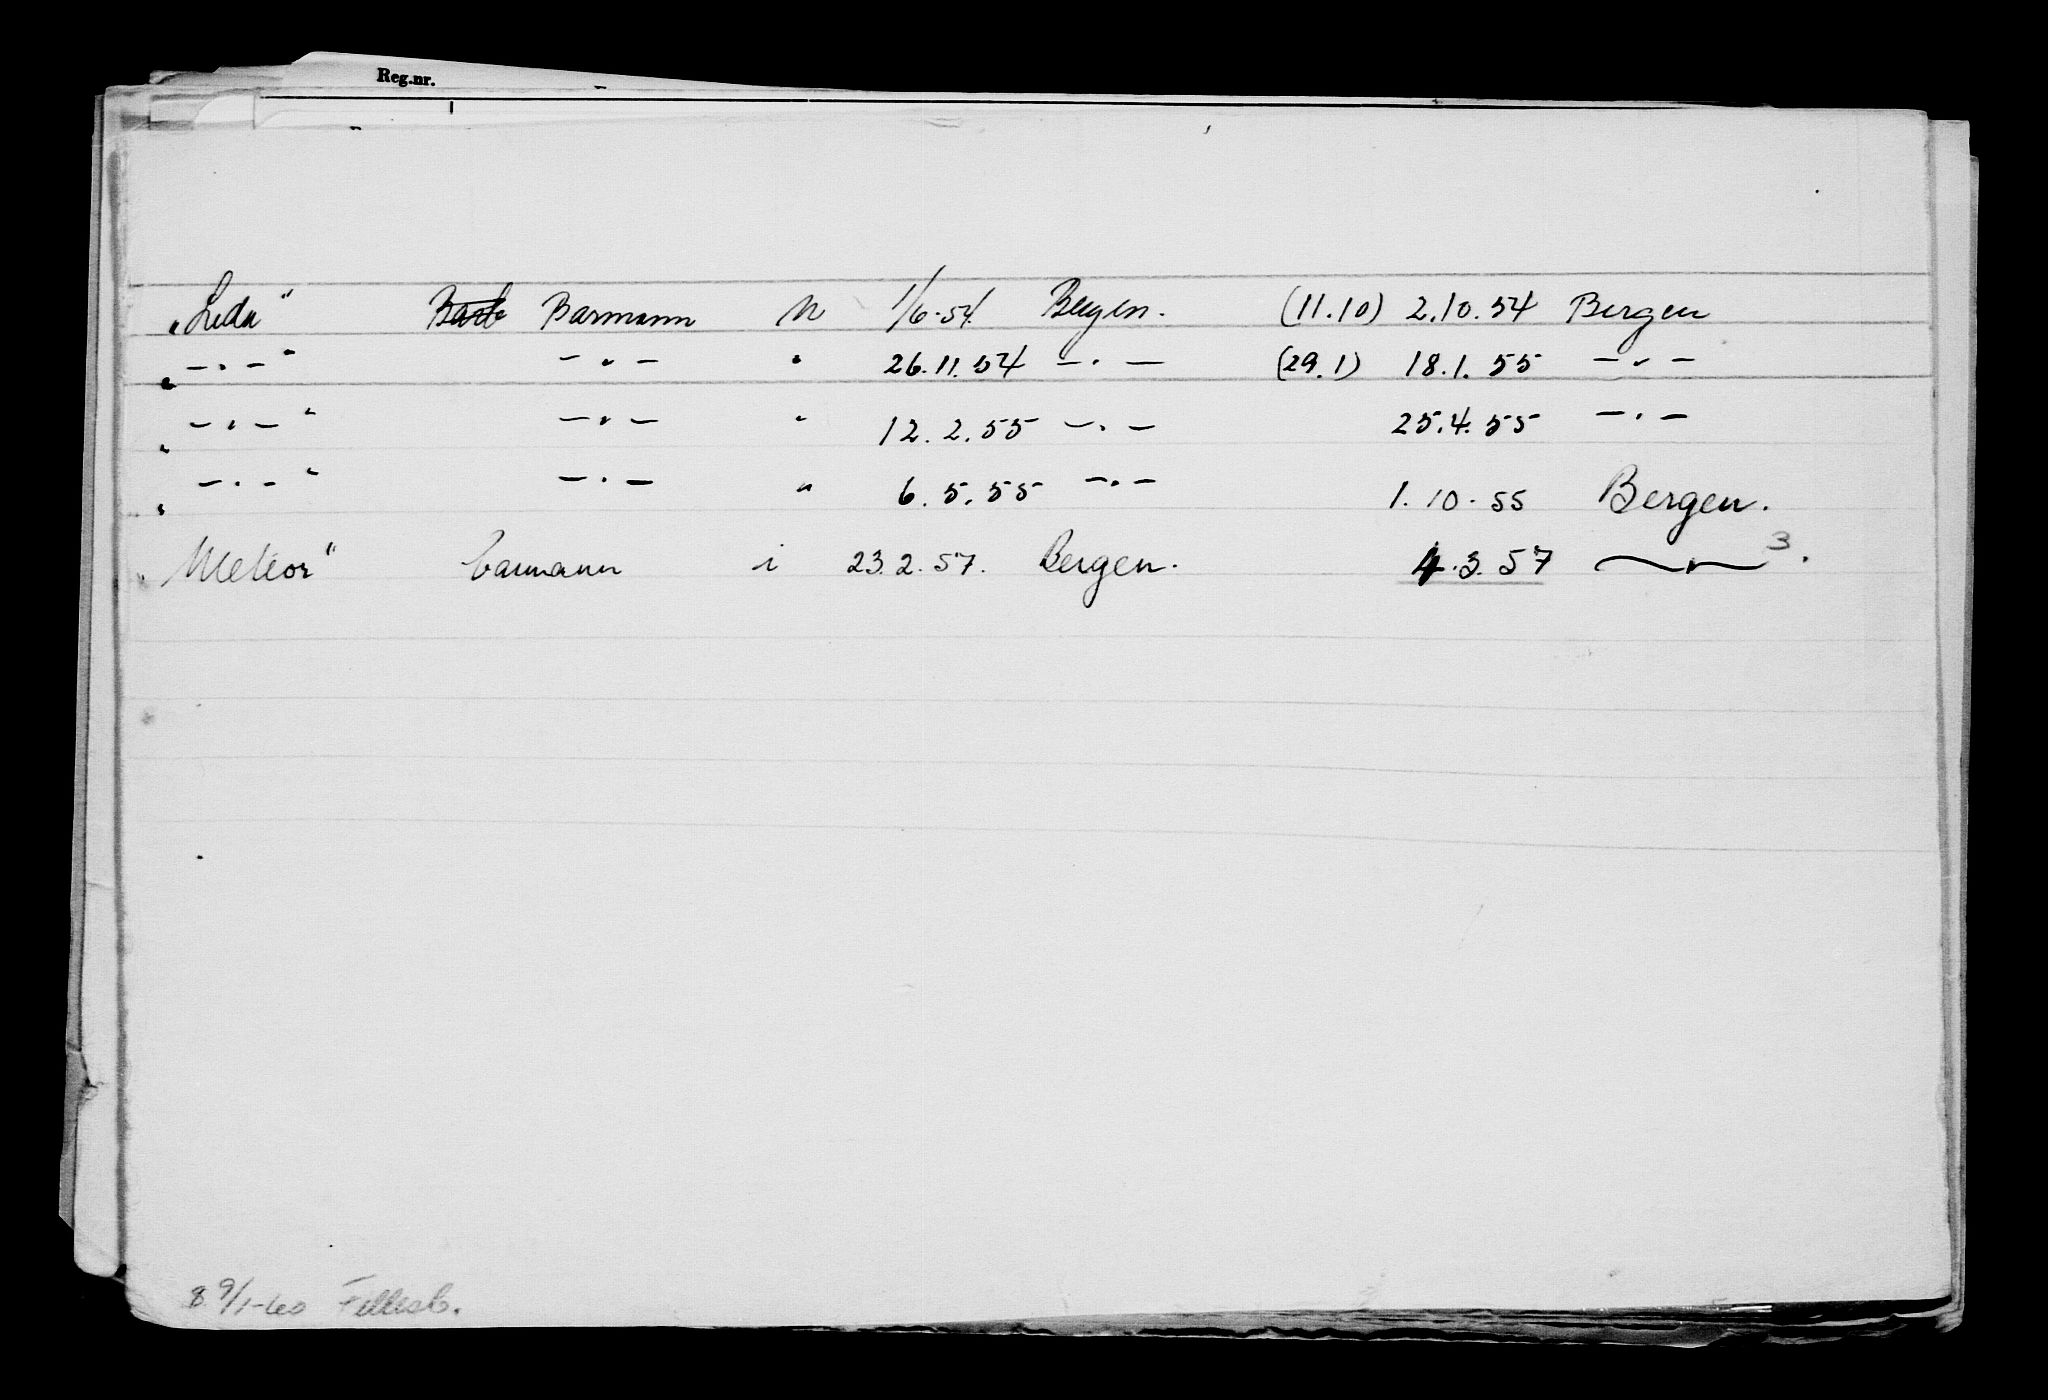 Reg.nr.
"Leda" Barmann N 1/6-54. Bergen. (11.10) 2.10.54 Bergen
" — . — " — " — " 26.11.54 — . — (29.1) 18.1.55 — " —
" — . — " — " — " 12.2.55 — . — 25.4.55 — . —
" — . — " — . — " 6.5.55 — . — 1.10.55 Bergen.
"Meteor" barmann i 23.2.57. Bergen. 4.3.57 — " — 3.
8 9/1-60 Fellesb.